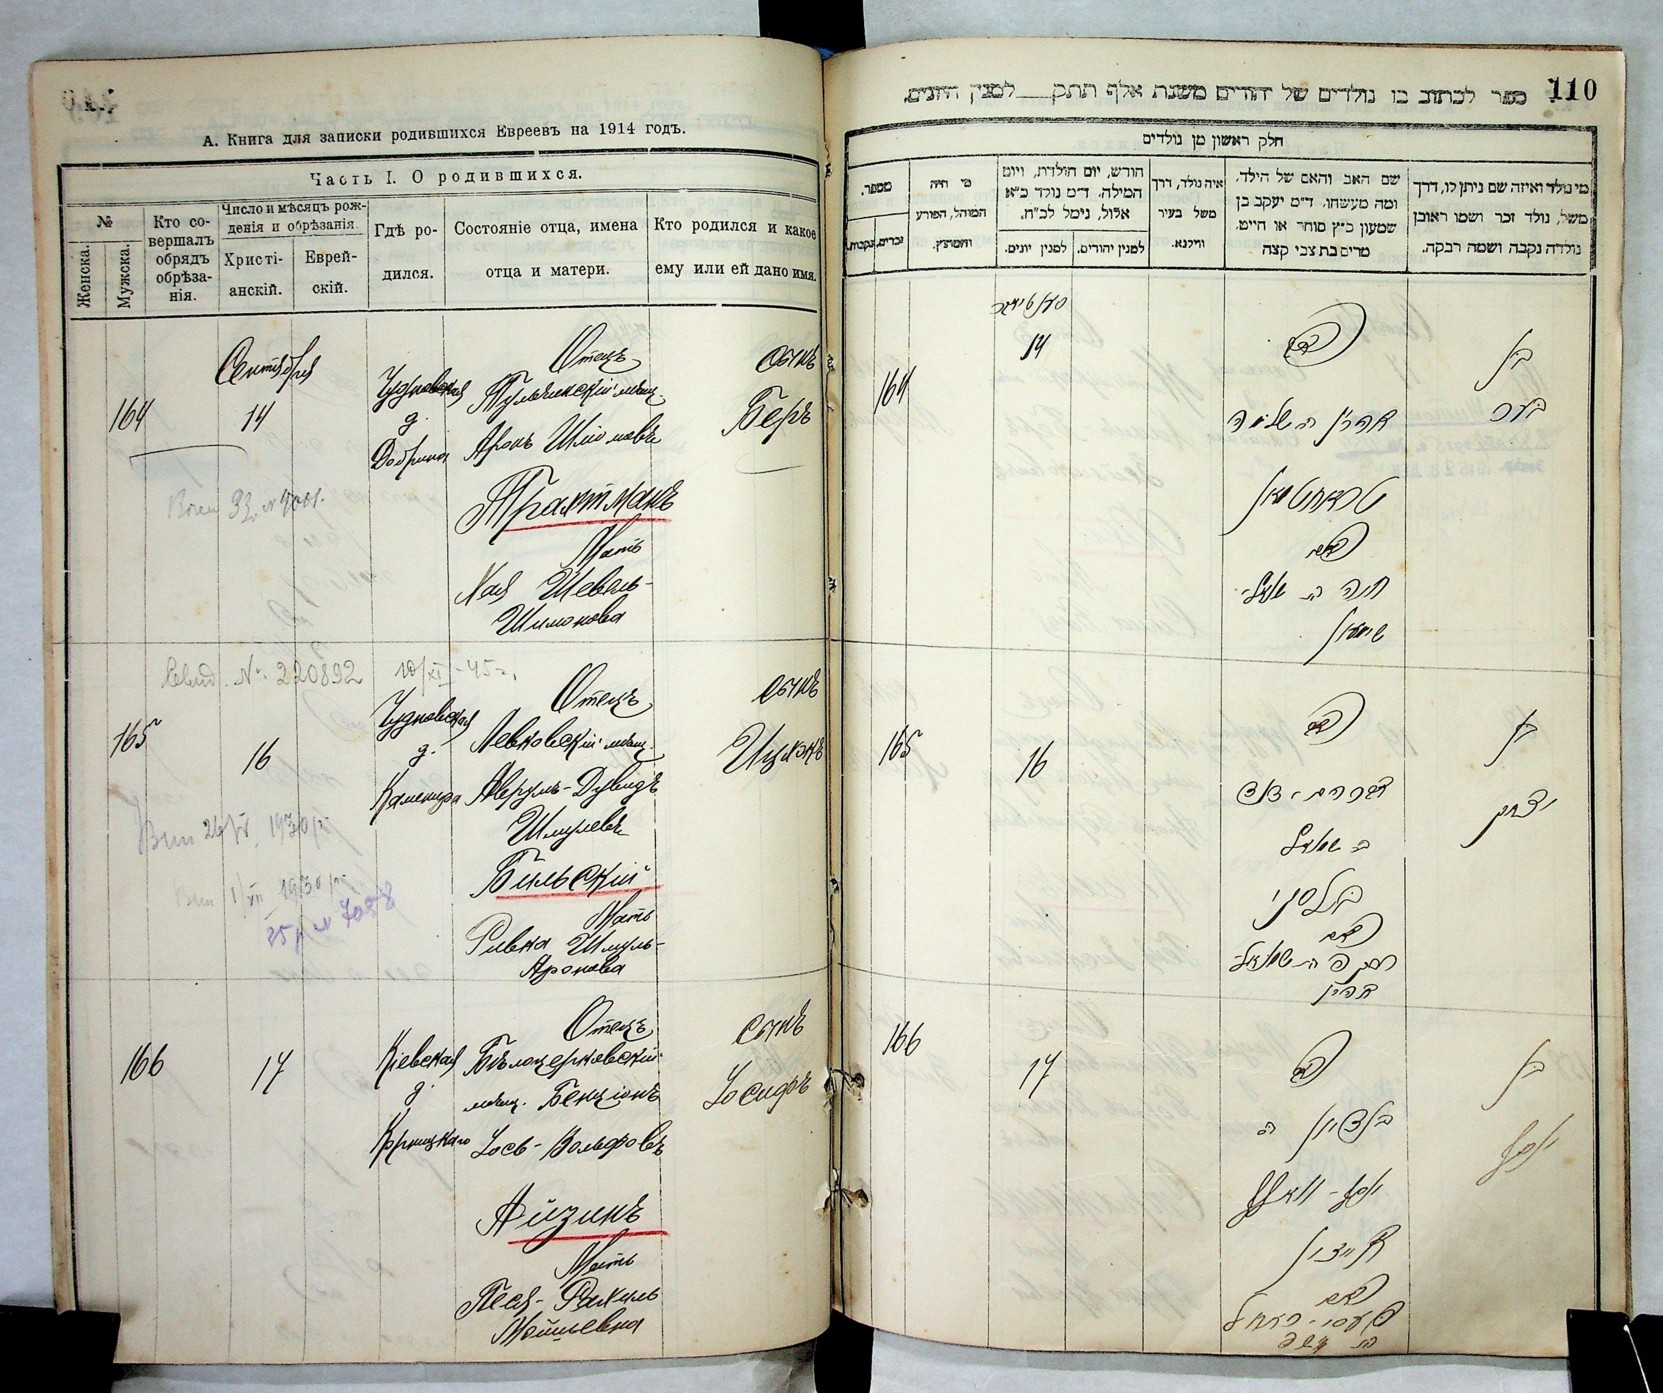 А. Книга для записки родившихся Евреевъ на 1914 годъ.
Часть I. О родившихся.
№
Женска.
Мужска.
Кто совершалъ обрядъ обрѣзанія.
Число и мѣсяцъ рожденія и обрѣзанія
Христіанскій.
Еврейскій.
Гдѣ родился.
Состояніе отца, имена отца и матери.
Кто родился и какое ему или ей дано имя.
Сентября
164
14
Чудновская
д.
Отецъ
мѣщ.
Аронъ Шломовъ
Трахтманъ
Мать
Хая Шевель-
Шимонова
Сынъ
Беръ
№ 220892 10/XI-45г.
165
16
Чудновская
д.
Отецъ
Левковскій мѣщ.
Аврумъ-Дувидъ
Шмулевъ
Бильскій
Мать
Ривка Шмуль-
Аронова
Сынъ
Ицхокъ
166
17
Кіевская
д.
Отецъ
Бѣлоцерковскій
мѣщ. Бенціонъ
Іось-Вольфовъ
Айзинъ
Мать
Песя-Рахиль
Мошьевна
Сынъ
Іосифъ
110
ספר לכתוב בו נולדים של יהודים משנת אלף תתק למנין היונים.
חלק ראשון מן נולדים
מספר.
זכרים.
נקבות.
מי היה המוהל, הפורע והמוצץ.
חודש, יום הולדת, ויום המילה. ד״מ נולד כ״א אלול, נימל לכ״ח.
למנין יונים.
למנין יהודים.
איה נולד, דרך משל בעיר ווילנא.
שם האב והאם של הילד, ומה מעשהו. ד״מ יעקב בן שמעון כ״ץ סוחר או חייט, מרים בת צבי קצה
מי נולד ואיזה שם ניתן לו, דרך משל, נולד זכר ושמו ראובן נולדה נקבה ושמה רבקה.
164
14
האב
אהרן ב׳ שלמה
טראחטמאן
האם
חיה
שימעון
בן
בער
165
16
האב
אברהם-דוד
ב׳ שמואל
בילסקי
האם
אהרן
בן
יצחק
166
17
האב
בנציון ב׳
יוסף-וואלף
אייזין
האם
בן
יוסף